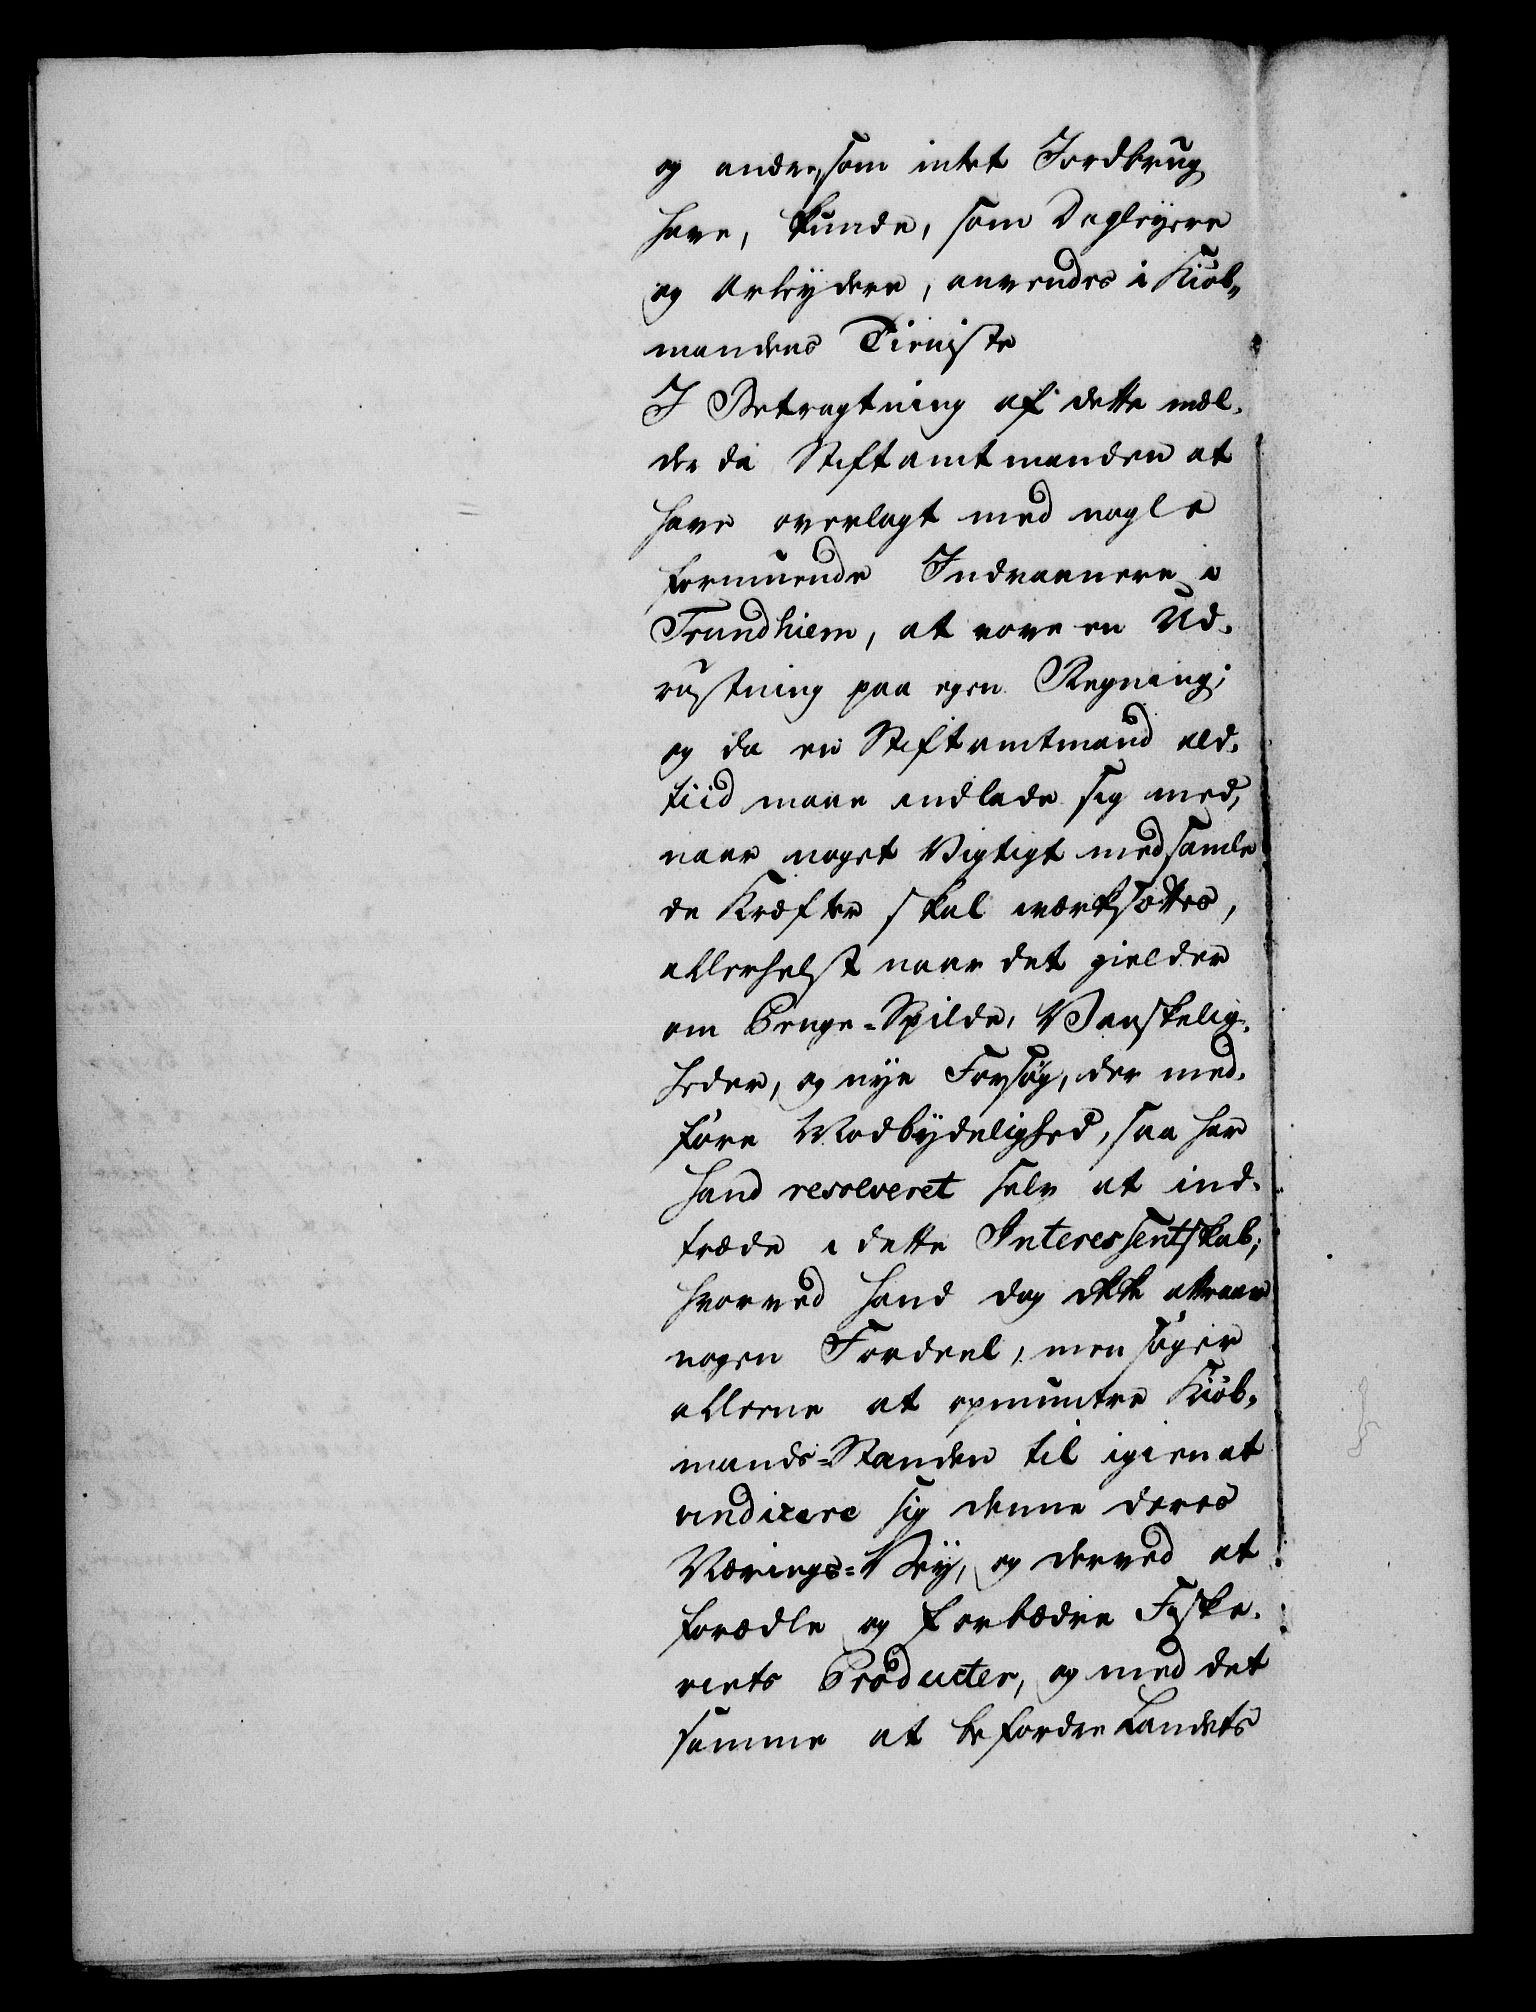 og andre, som intet Jordbrug
have, kunde, som Dagleyere
og Arbeydere, anvendes i Kiøb„
mandens Tieniste
I Betragtning af dette mel¬
der da Stiftamtmanden at
have overlagt med nogle
formuende Indvaanere i
Trundhiem, at vove en Ud¬
rustning paa egen Regning;
og da en Stiftamtmand ald¬
tiid maae indlade sig med,
naar noget Vigtigt med samle
de Kræfter skal værksættes,
allerhelst naar det gielder
om Penge-Spilde, Vanskelig¬
heder, og nye Forsøg, der med¬
føre Modbydelighed, saa har
hand resolveret selv at ind¬
træde i dette Interessentskab;
hvorved hand dog ikke attraaer
nogen Fordeel, men søger
alleene at opmuntre Kiøb¬
mands-Standen til igien at
vindicere sig denne deres
Nærings-Vey, og derved at
forædle og forbædre Fiske¬
riets Producter, og med det
samme at befordre Landets